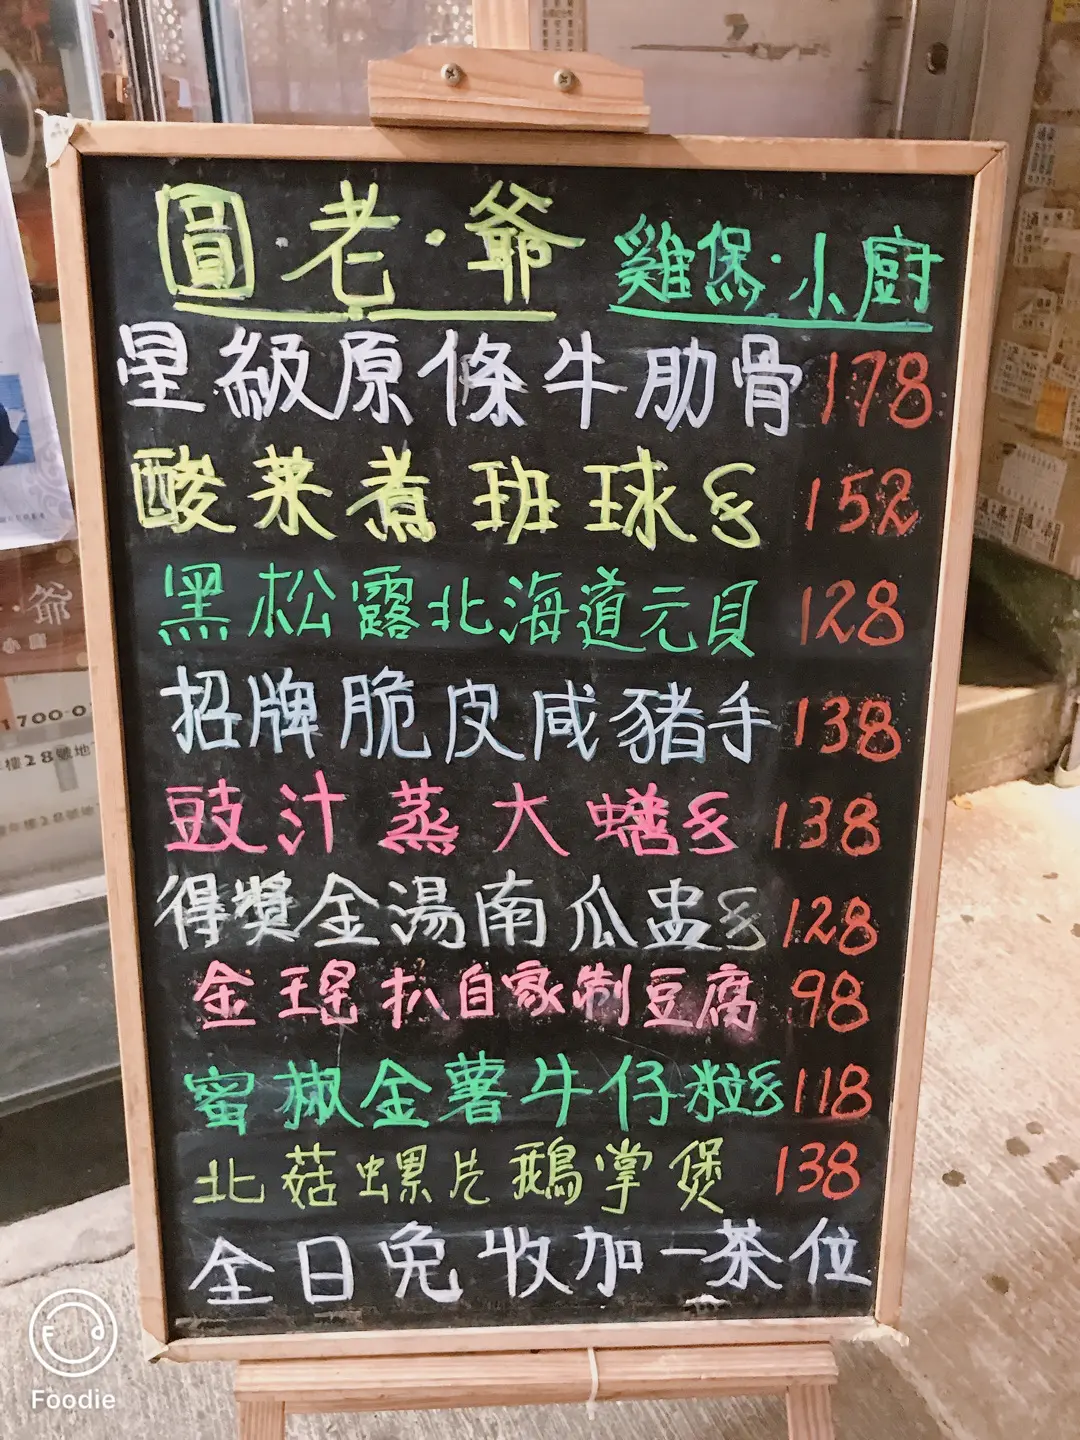 圓·老·爺 雞煲·小廚
星級原條牛肋骨 178
酸菜煮班球 152
黑松露北海道元貝 128
招牌脆皮咸豬手 138
豉汁蒸大蟮 138
得獎金湯南瓜盅 128
金瑤扒自家制豆腐 98
蜜椒金薯牛仔粒 118
北菇螺片鵝掌煲 138
全日免收加一茶位
·爺
小廚
1700-0
樓28號地
Foodie